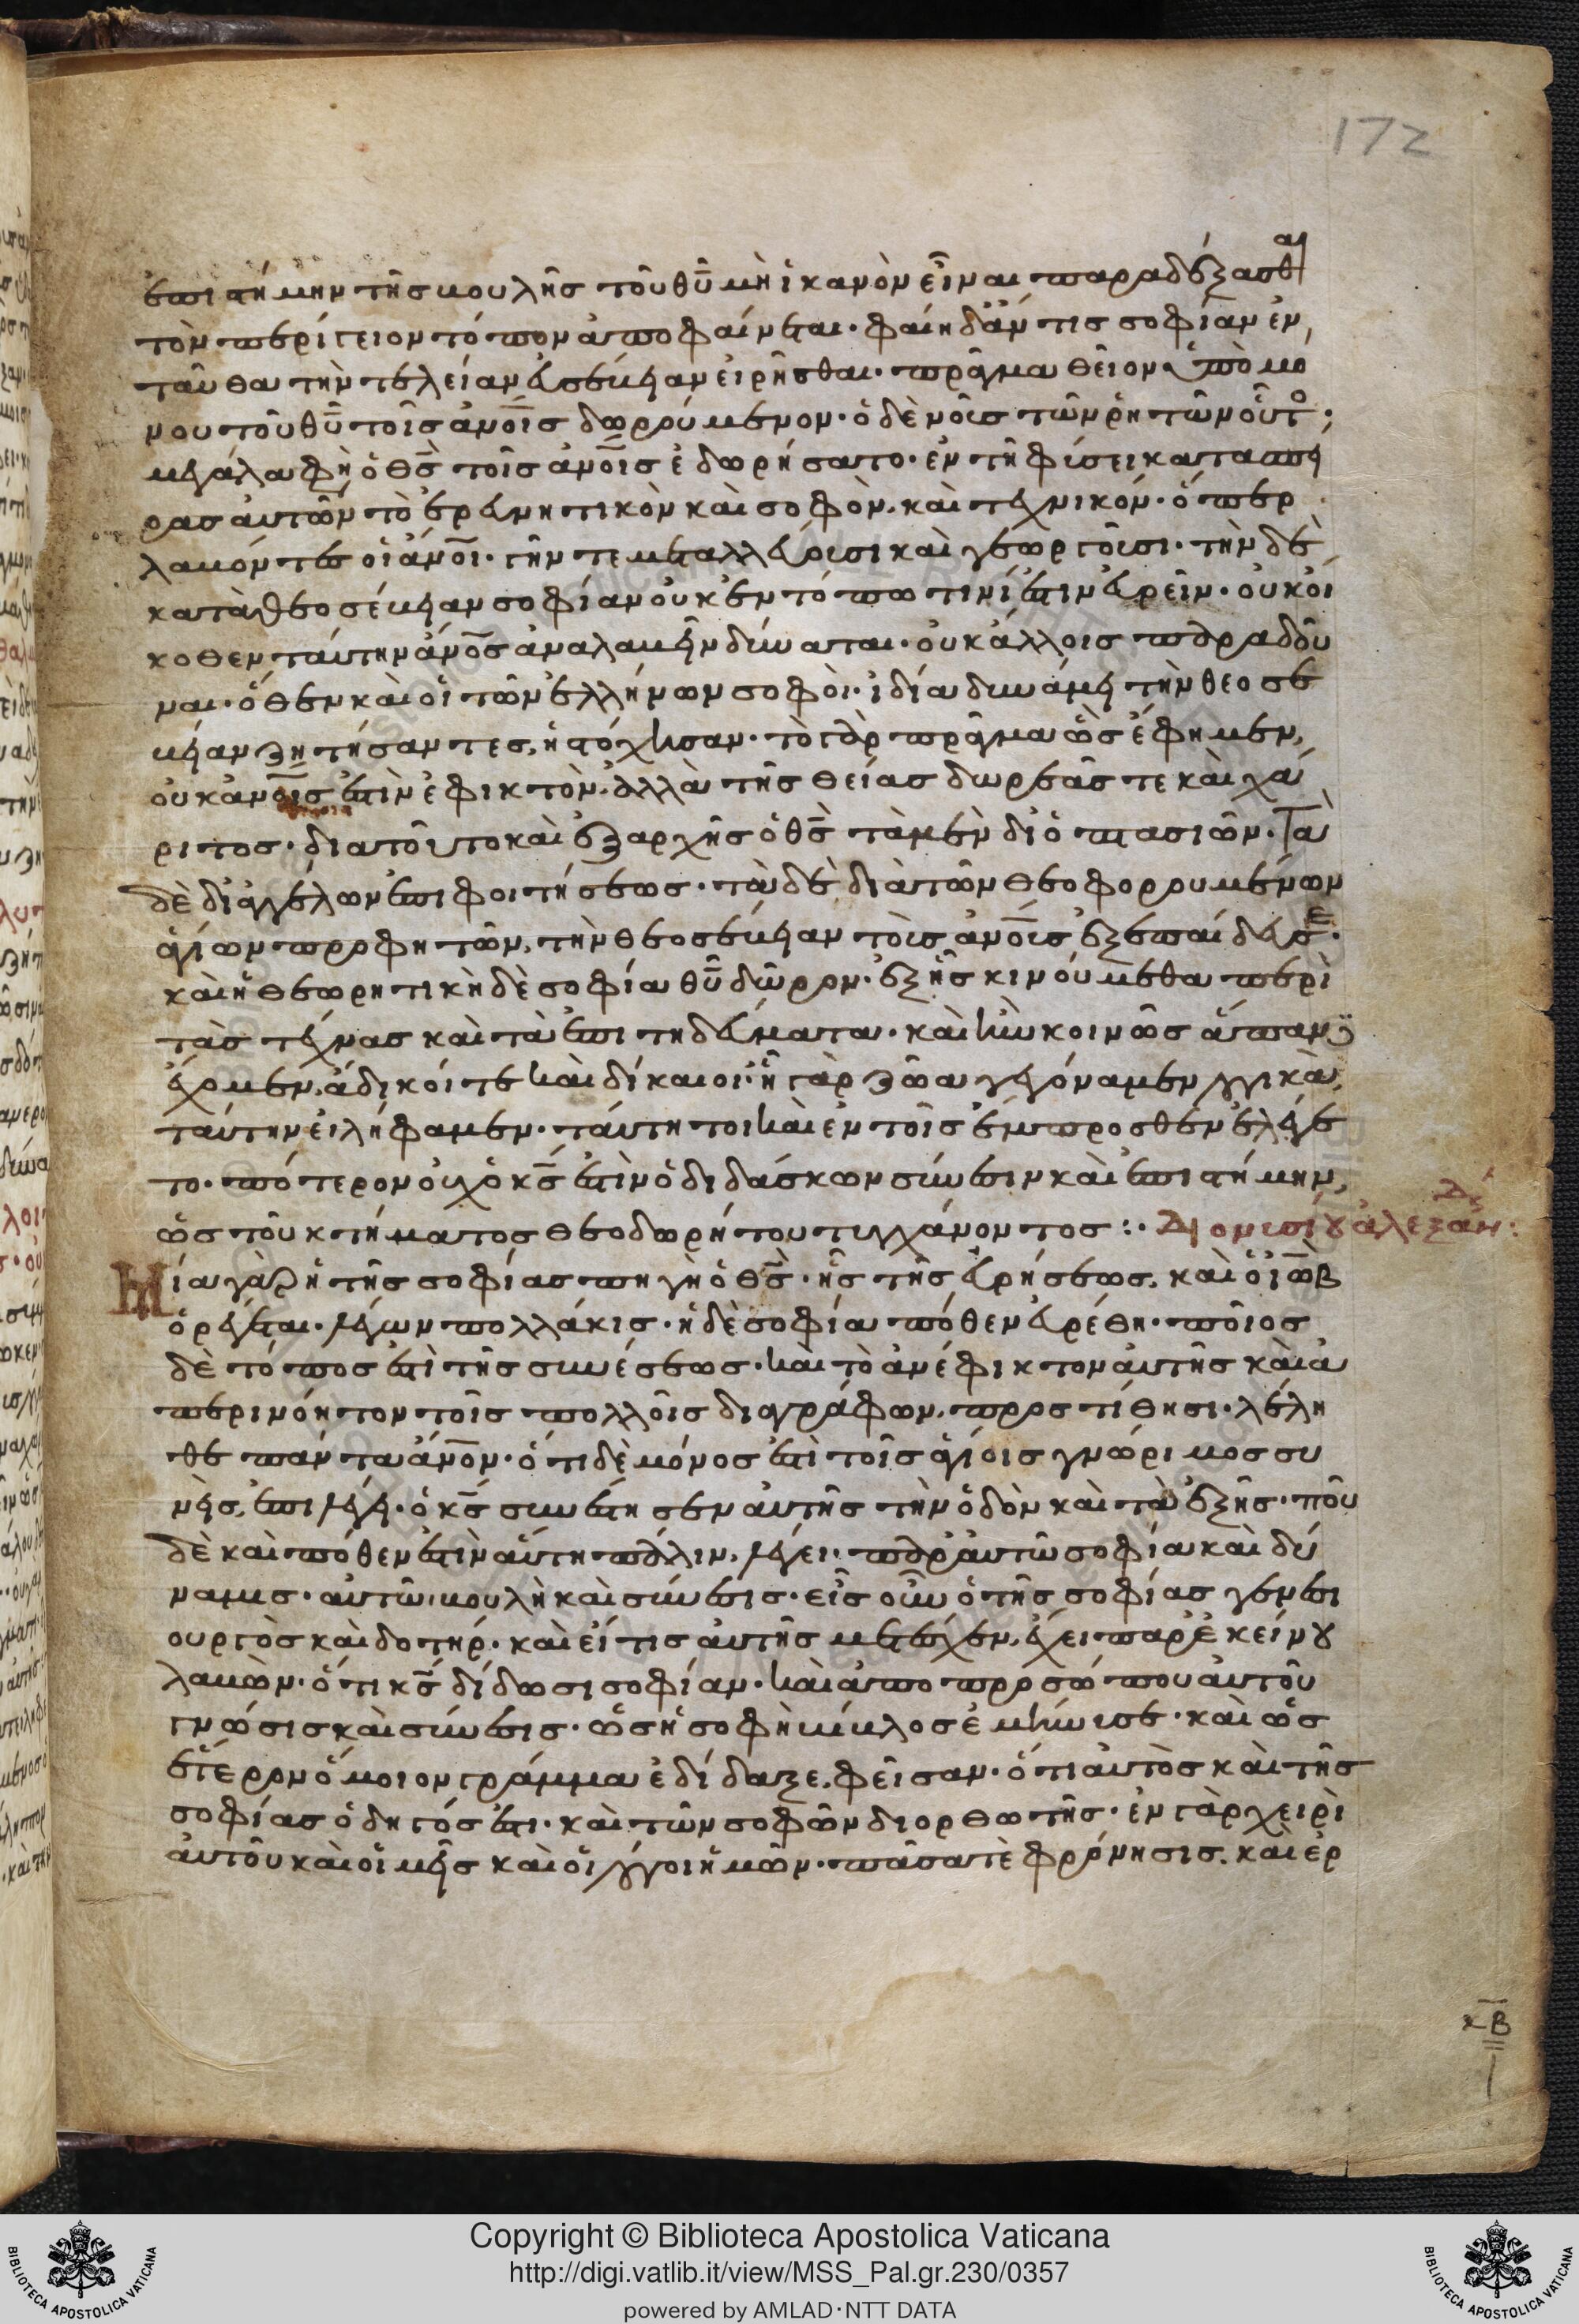 172
ἐπιστήμην τῆς βουλῆς τοῦ θῦ μὴ ἱκανὸν εἶναι παραδέξασθαι
τὸν περίγειον τόπον ἀποφαίνεται· φαίη δἄν τις σοφίαν ἐν
ταῦθα τὴν τελείαν εὐσέβειαν εἰρῆσθαι· πρᾶγμα θεῖον ὑπὸ μό
νου τοῦ θῦ τοῖς ἀνοῖς δωρούμενον· ὁ δὲ νοῦς τῶν ῥητῶν οὗτος·
μεγάλα φὴ ὁ θς τοῖς ἀνοῖς ἐδωρήσατο· ἐν τῆ φύσει κατασπεί
ρας αὐτῶν τὸ ἐρευνητικὸν καὶ σοφὸν, καὶ τεχνικόν· ὅπερ
λαβόντες οἱ ἀνοι· γῆν τε μεταλλεύουσι καὶ γεωργοῦσι· τὴν δὲ
κατὰ θεοσέβειαν σοφίαν οὐκ ἐν τόπω τινί ἐστιν εὑρεῖν· οὐκ οἴ
κοθεν ταύτην ἀνος ἀναλαβεῖν δύναται· οὐκ ἄλλοις παραδοῦ
ναι· ὅθεν καὶ οἱ τῶν ἑλλήνων σοφοὶ· ἰδία δυνάμει τὴν θεοσέ
βειαν ζητήσαντες, ἠστόχησαν· τὸ γὰρ πρᾶγμα ὡς ἔφημεν,
οὐκ ἀνοις ἐστὶν ἐφικτὸν, ἀλλὰ τῆς θείας δωρεᾶς τε καὶ χά
ριτος· διατοῦτο καὶ ἐξαρχῆς ὁ θς τὰ μὲν δι ὀπτασιῶν· Τὰ
δὲ δι ἀγγέλων ἐπιφοιτήσεως· τὰ δὲ διὰ τῶν θεοφορουμένων
ἁγίων προφητῶν, τὴν θεοσέβειαν τοὺς ἀνους ἐξεπαίδευσε·
καὶ ἡ θεωρητικὴ δὲ σοφία θῦ δῶρον· ἐξ ἧς κινούμεθα περὶ
τὰς τέχνας καὶ τὰ ἐπιτηδεύματα· καὶ ἣν κοινῶς ἅπαντες
ἔχομεν, ἄδικοί τε καὶ δίκαιοι· ἧ γὰρ ζῶα γεγόναμεν λογικὰ,
ταύτην εἰλήφαμεν· ταύτη τοι καὶ ἐν τοῖς ἔμπροσθεν ἐλέγε
το· πότερον οὐχ ὁ κς ἐστὶν ὁ διδάσκων σύνεσιν καὶ ἐπιστήμην,
ὡς τοῦ κτήματος θεοδωρήτου τυγχάνοντος:· Διονυσίου ἀλεξαν:
Μία γὰρ ἡ τῆς σοφίας πηγὴ ὁ θς· ἧς τῆς εὑρήσεως, καὶ ὁ ἰὼβ
ὀρέγεται· λέγων πολλάκις· ἡ δὲ σοφία πόθεν εὑρέθη· ποῖος
δὲ τόπος ἐστὶ τῆς συνέσεως· καὶ τὸ ἀνέφικτον αὐτῆς καὶ ἀ
περινόητον τοῖς πολλοῖς διαγράφων, προστίθησι· λέλη
θε πάντα ἀνον· ὅτι δὲ μόνος ἐστὶ τοῖς ἁγίοις γνώριμος συ
νεὶς, ἐπιλέγει· ὁ κς συνέστησεν αὐτῆς τὴν ὁδὸν καὶ τὰ ἐξῆς· ποῦ
δὲ καὶ πόθεν ἐστὶν αὕτη πάλιν, λέγει· παρ αὐτῶ σοφία καὶ δύ
ναμις· αὐτῶ βουλὴ καὶ σύνεσις· εἷς οὖν ὁ τῆς σοφίας γενεσι
ουργὸς καὶ δοτήρ· καὶ εἴ τις αὐτῆς μετέσχεν, ἔχει παρ ἐκείνου
λαβὼν· ὅτι κς δίδωσι σοφίαν· καὶ ἀπο προσώπου αὐτοῦ
γνῶσις καὶ σύνεσις· ὡς ἡ σοφὴ βίβλος ἐμήνυσε· καὶ ὡς
ἕτερον ὅμοιον γράμμα ἐδίδαξε, φεῖσαν· ὅτι αὐτὸς καὶ τῆς
σοφίας ὁδηγός ἐστι· καὶ τῶν σοφῶν διορθωτής· ἐν γὰρ χειρὶ
αὐτοῦ καὶ ἡμεῖς καὶ οἱ λόγοι ἡμῶν· πᾶσα τὲ φρόνησις, καὶ ἐρ
κβ
Copyright © Biblioteca Apostolica Vaticana
http://digi.vatlib.it/view/MSS_Pal.gr.230/0357
powered by AMLAD·NTT DATA
BIBLIOTECA APOSTOLICA VATICANA
BIBLIOTECA APOSTOLICA VATICANA